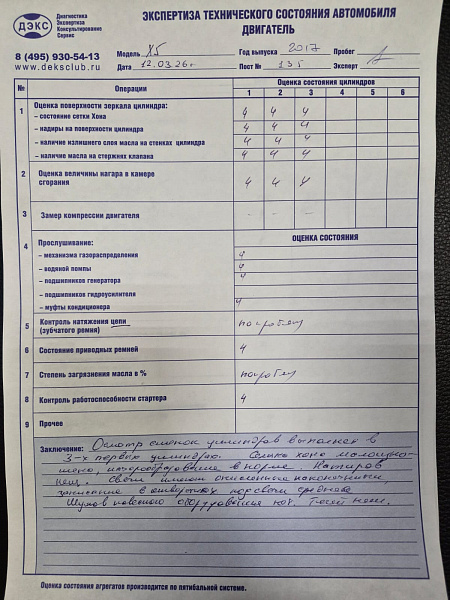 ДЭКС
Диагностика
Экспертиза
Консультирование
Сервис
8 (495) 930-54-13
www.deksclub.ru
ЭКСПЕРТИЗА ТЕХНИЧЕСКОГО СОСТОЯНИЯ АВТОМОБИЛЯ
ДВИГАТЕЛЬ
Модель X5 Год выпуска 2017 Пробег
Дата 12.03.26г Пост № 135 Эксперт
№ Операции Оценка состояния цилиндров
1 2 3 4 5 6
1 Оценка поверхности зеркала цилиндра:
– состояние сетки Хона 4 4 4
– надиры на поверхности цилиндра 4 4 4
– наличие излишнего слоя масла на стенках цилиндра 4 4 4
– наличие масла на стержнях клапана 4 4 4
2 Оценка величины нагара в камере
сгорания 4 4 4
3 Замер компрессии двигателя – – –
4 Прослушивание: ОЦЕНКА СОСТОЯНИЯ
– механизма газораспределения 4
– водяной помпы 4
– подшипников генератора 4
– подшипников гидроусилителя
– муфты кондиционера 4
5 Контроль натяжения цепи
(зубчатого ремня) по пробегу
6 Состояние приводных ремней 4
7 Степень загрязнения масла в % по пробегу
8 Контроль работоспособности стартера 4
9 Прочее
Заключение: Осмотр стенок цилиндров выполнен в
3-х первых цилиндрах. Сетка хона
в норме.
нет. Свечи имеют окисленные наконечники,
в отверстиях под свечи
оборудования нет. Течей нет.
Оценка состояния агрегатов производится по пятибальной системе.